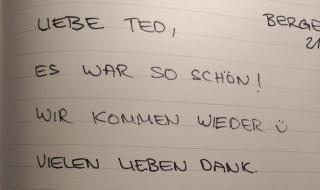 LIEBE TED,
ES WAR SO SCHÖN!
WIR KOMMEN WIEDER Ü
VIELEN LIEBEN DANK.